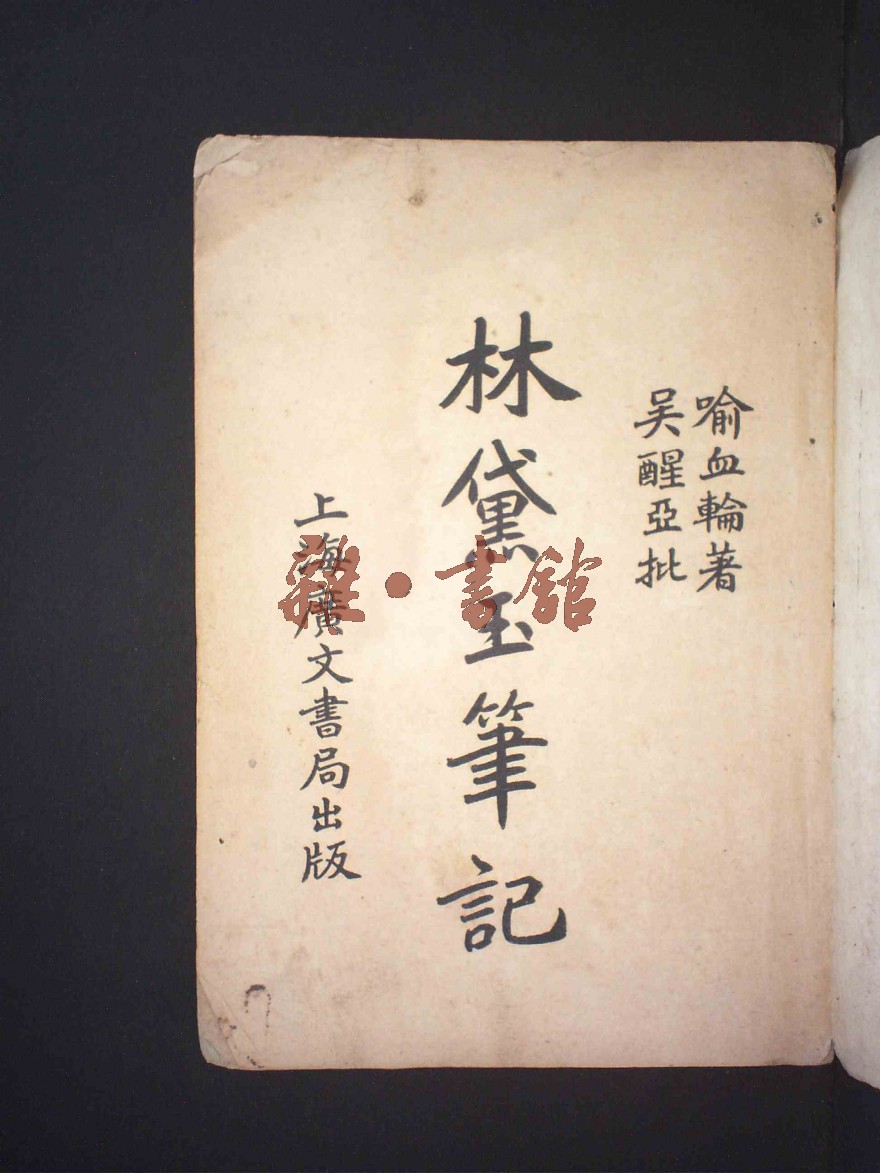 喻血輪著
吴醒亞批
林黛玉筆記
上海廣文書局出版
雜·書館